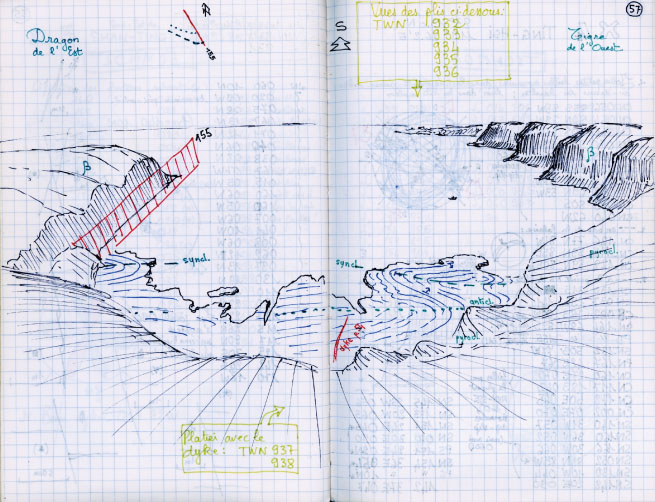 Dragon
de l'Est
N
155
155
β
syncl.
Platier avec le
dyke: TWN 937
938
S
Vues des plis ci-dessous:
TWN 932
933
934
935
936
57
Tigre
de l'Ouest
β
pyrocl.
syncl.
anticl.
pyrocl.